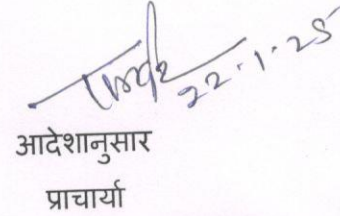 22.1.25
आदेशानुसार
प्राचार्या